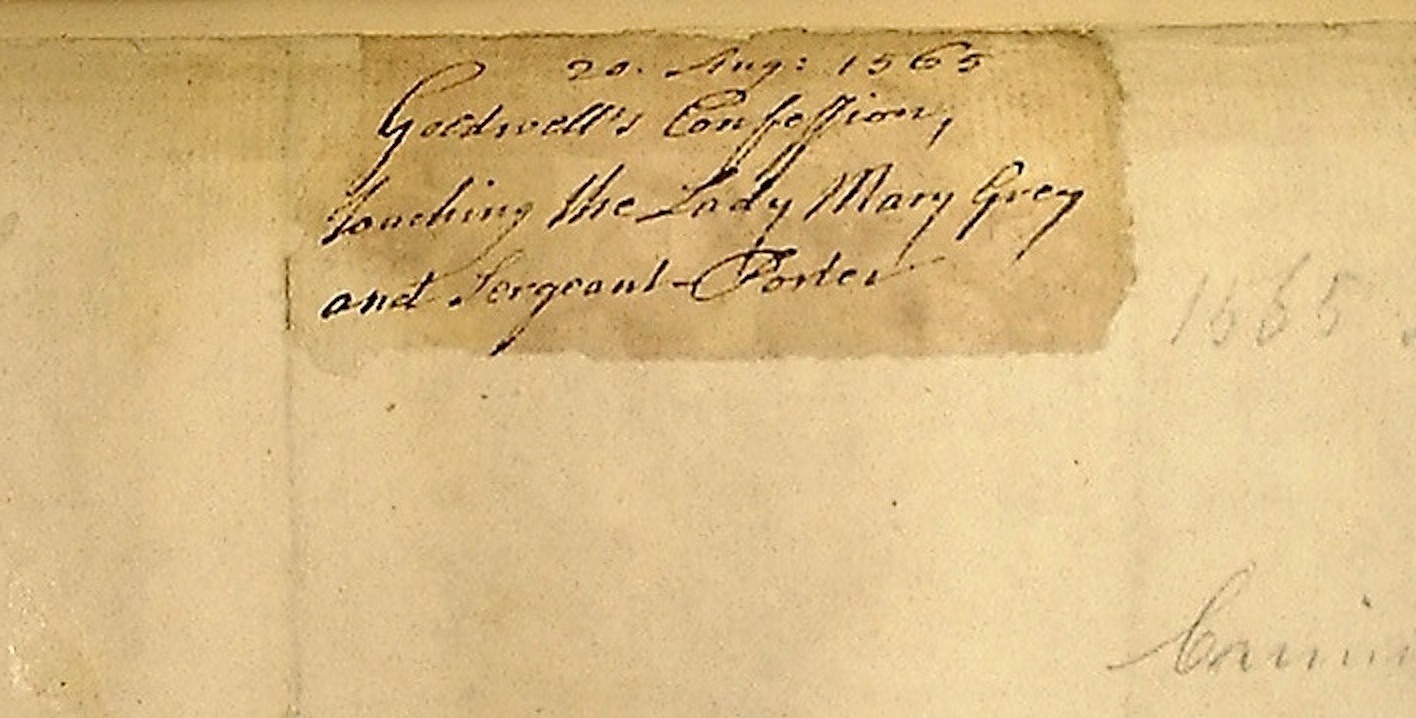 20. Aug: 1565
Goldwell's Confession,
touching the Lady Mary Grey
and Sergeant-Porter
1565